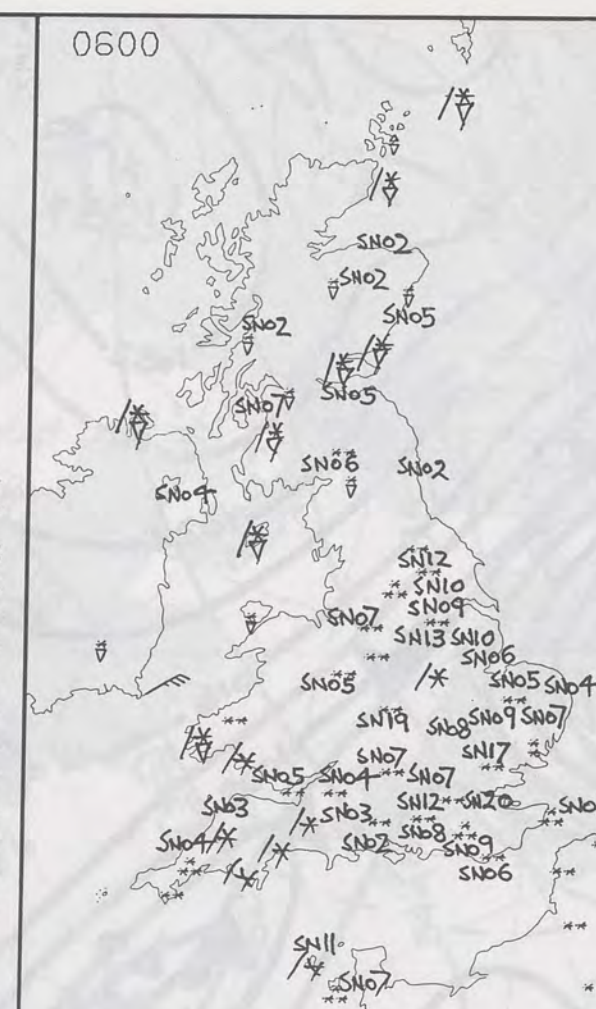 0600
SN02
SN02
SN05
SN02
SN05
SN07
SN06
SN02
SN04
SN12
SN10
SN09
SN07
SN13 SN10
SN06
SN05
SN05 SN04
SN19
SN08 SN09 SN07
SN07
SN17
SN05 SN04 SN07
SN03
SN03
SN12 SN20
SN0
SN04
SN02
SN08
SN09
SN06
SN11
SN07